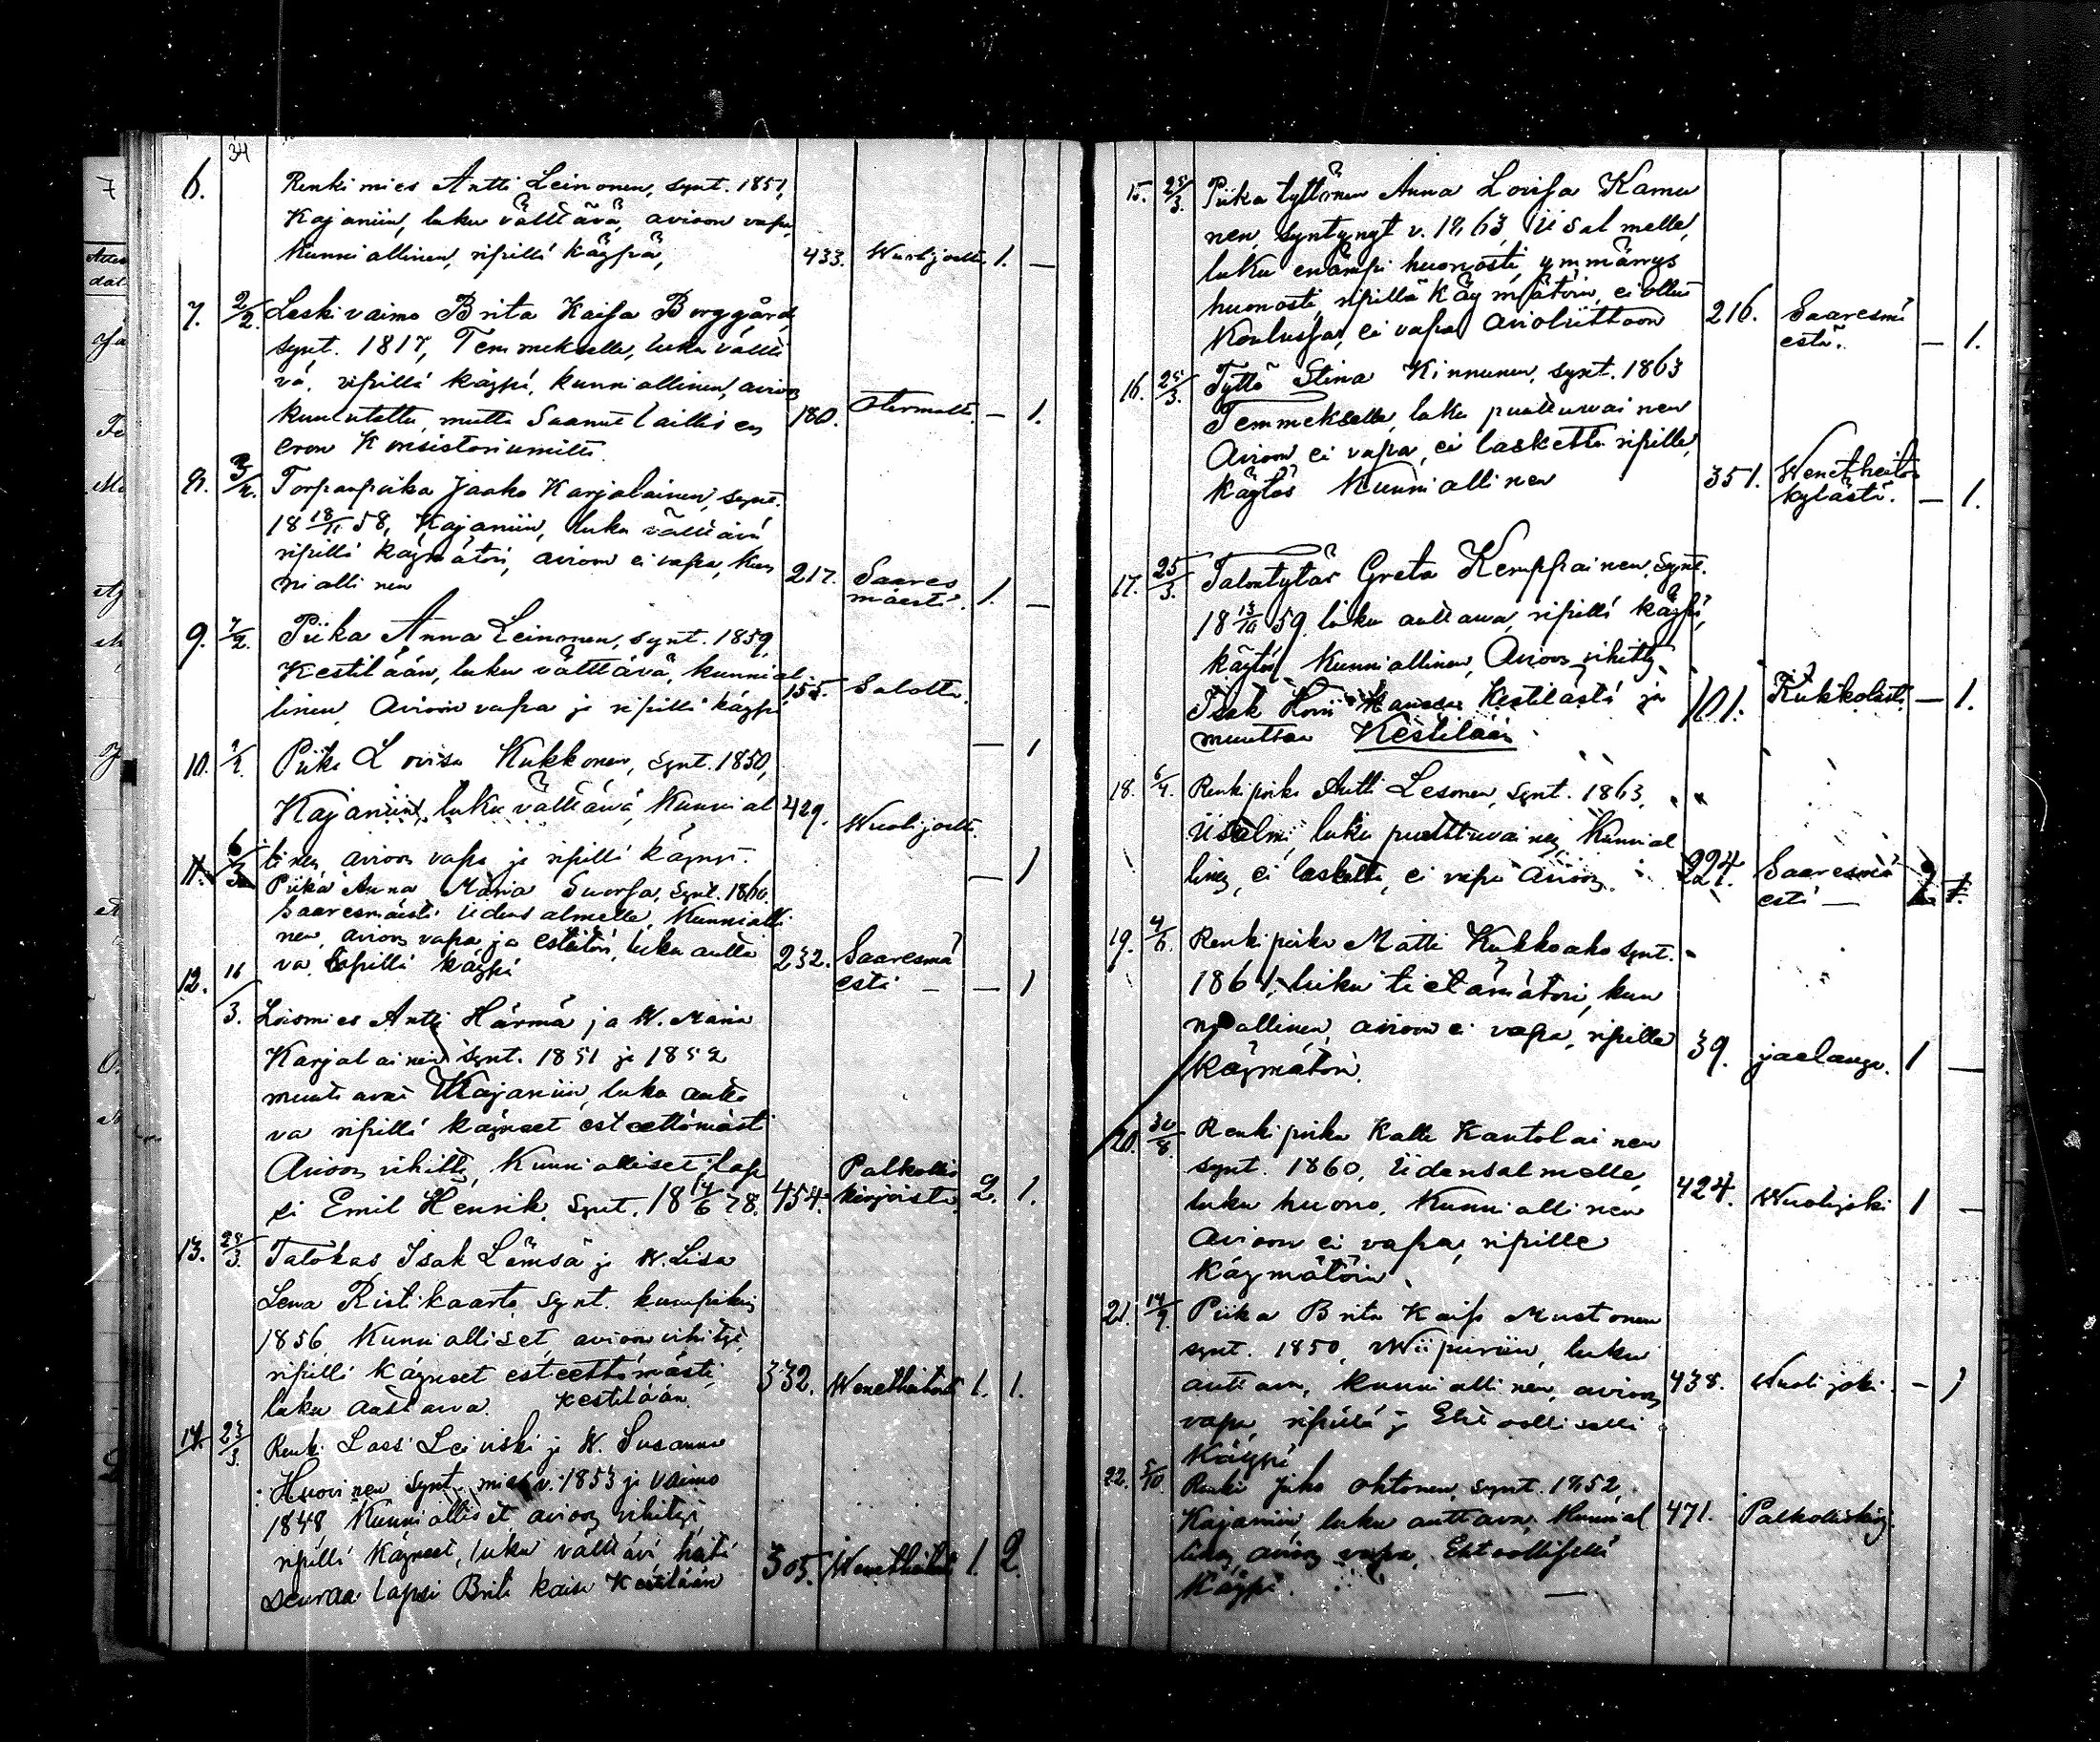 34
6. Renkimies Antti Leinonen, synt. 1851,
Kajaniin, luku välttävä, avioon vapa,
Kunniallinen, ripillä käypä, 433. Wuolijoelta 1. —
7. 2/2. Leskivaimo Brita Kaisa Borggård,
synt. 1817, Temmekselle, luku vältt
vä, ripillä käypä, kunniallinen, avioon
kuulutettu, mutta Saanut laillisen 180. Otermalta. — 1.
eron Konsistoriumilta.
8. Torpanpoika Jaako Karjalainen, synt.
18 18/11 58, Kajaniin, luku välttävä
ripillä käymätön, avioon ei vapa, kun 217. Saares
niallinen mäestä. 1. —
9. 7/2. Piika Anna Leinonen, synt. 1859,
Kestilään, luku välttävä, kunnial
linen, Avioon vapa ja ripillä käypä 155. Salolta.
10. Piika Lovisa Kukkonen, synt. 1850, — 1
Kajaniin, luku välttävä, Kunnial 429. Wuolijoelta.
linen, avioon vapa ja ripillä käynyt. — 1
11. 6/3 Piika Anna Maria Suorsa, synt. 1860.
Saaresmäestä Iidensalmelle, Kunnialli
nen, avioon vapa ja esteetön, luku autta 232. Saaresmä
va, ripillä käypä estä — — 1
12. 16/3. Loismies Antti Härmä ja W. Maria
Karjalainen synt. 1851 ja 1852
muuttavat Kajaniin, luku autta
va ripillä käyneet esteettömästi
Avioon vihitty, Kunnialliset, lap Palkollis
si Emil Henrik, synt. 18 14/6 78. 454. kirjoista. 2. 1.
13. Talokas Isak Lämsä ja W. Lisa
Lena Ristikaarto, synt. kumpikin
1856, Kunnialliset, avioon vihityt,
ripillä käyneet esteettömästi 332. Wenetheitosta 1. 1.
luku auttava. Kestilään.
14. 23/3. Renki Lassi Leiviski ja W. Susanna
Huovinen synt. mies v. 1853 ja vaimo
1848, Kunnialliset avioon vihityt
ripillä käyneet, luku välttävä, heitä 305. Wenetheitosta 1. 2.
seuraa lapsi Brita Kaisa Kestilään
15. 25/3. Piika tyttönen Anna Lovisa Kamu
nen, syntynyt v. 1863, Iisalmelle,
luku enämpi huonosti, ymmärrys
huonosti, ripillä käymätöin, ei ollut 216. Saaresmä
Koulussa, ei vapa avioliittoon estä. — 1.
16. 25/3. Tyttö Stina Kinnunen, synt. 1863
Temmekselle, luku puuttuvainen
Avioon ei vapa, ei laskettu ripille, Wenetheito
käytös Kunniallinen 351. kylästä. — 1.
17. 25/3. Talontytär Greta Kemppainen, synt.
18 13/10 59, luku auttava, ripillä käypä,
käytös Kunniallinen, Avioon vihitty
Isak kanssa Kestilästä ja 101. Kukkolasta — 1.
muuttaa Kestilään
18. Renkipoika Antti Lesonen, synt. 1863,
Iisalmi, luku puuttuvainen, Kunnial
linen, ei laskettu, ei vapa Avioon. Saaresmä
estä —
19. 4/6. Renkipoika Matti Kukkoaho synt.
1861, luku tietämätön, kun
niallinen, avioon ei vapa, ripille 39. jaelanga. 1 —
käymätön.
20. 30/8. Renkipoika Kalle Kantolainen
synt. 1860, Iidensalmelle,
luku huono, Kunniallinen 424. Wuolijoki 1 —
Avioon ei vapa, ripille
käymätöin.
21. 14/9. Piika Brita Kaisa Mustonen
synt. 1850, Wiipuriin, luku
auttava, kunniallinen, avioon 438. Wuolijoki. — 1
vapa, ripillä ja Ehtoollisella
käypä
22. 5/10. Renki Juho Ohtonen, synt. 1852,
Kajaniin, luku auttava, Kunnial 471. Palkolliskirj.
linen, avioon vapa, Ehtoollisella
käypä. —